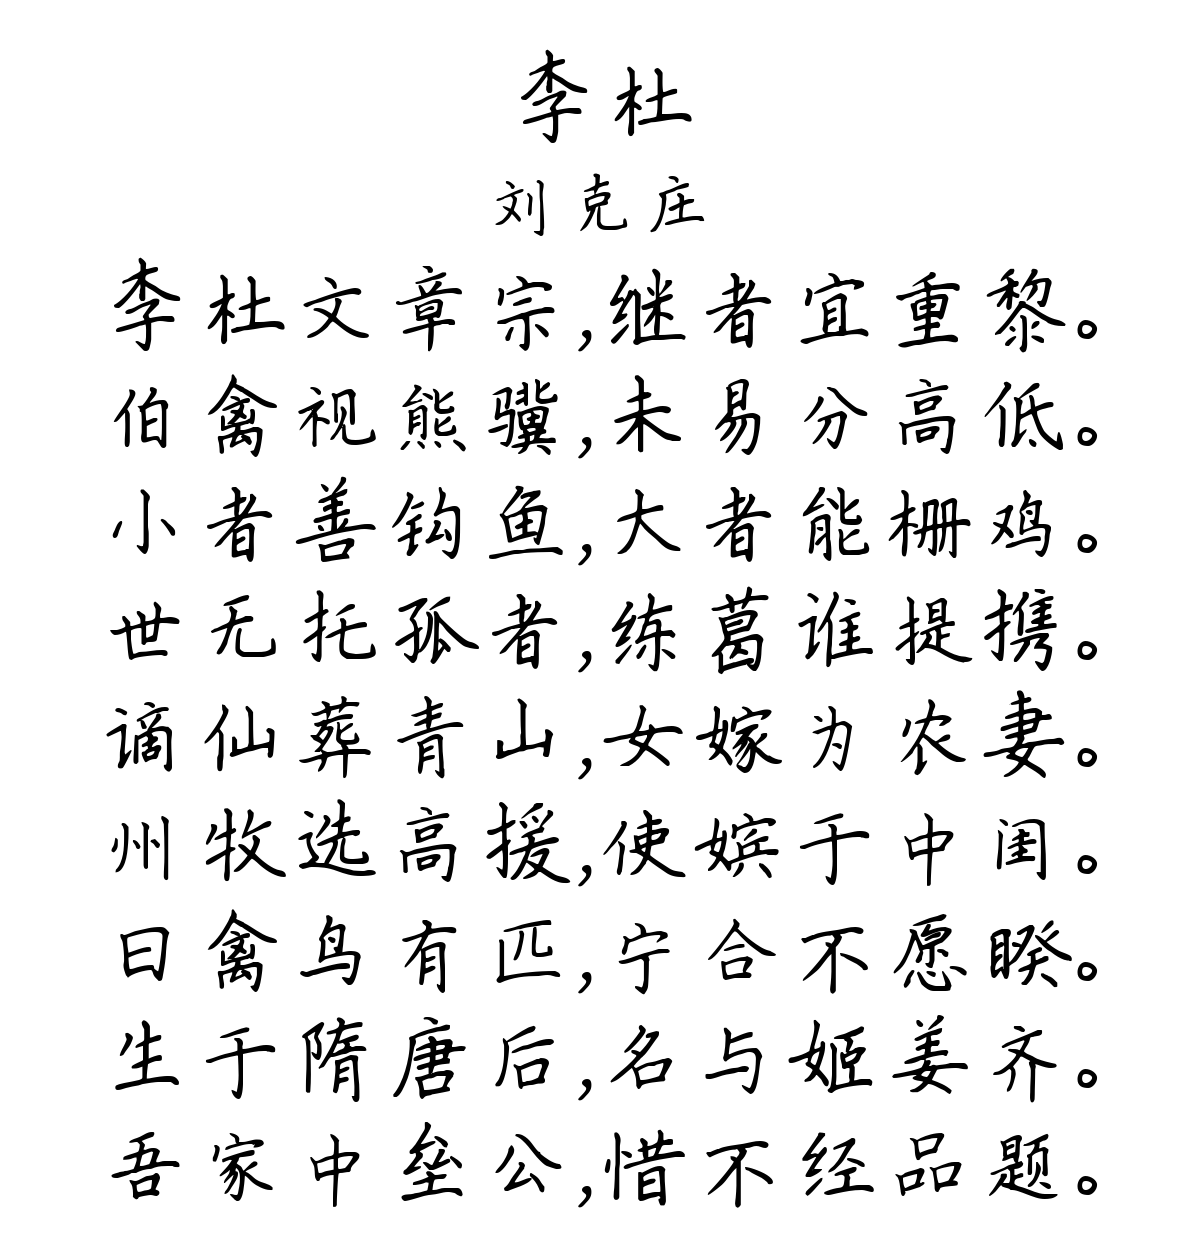 李杜
刘克庄
李杜文章宗,继者宜重黎。
伯禽视熊骥,未易分高低。
小者善钩鱼,大者能栅鸡。
世无托孤者,练葛谁提携。
谪仙葬青山,女嫁为农妻。
州牧选高援,使嫔于中闺。
曰禽鸟有匹,宁合不愿睽。
生于隋唐后,名与姬姜齐。
吾家中垒公,惜不经品题。